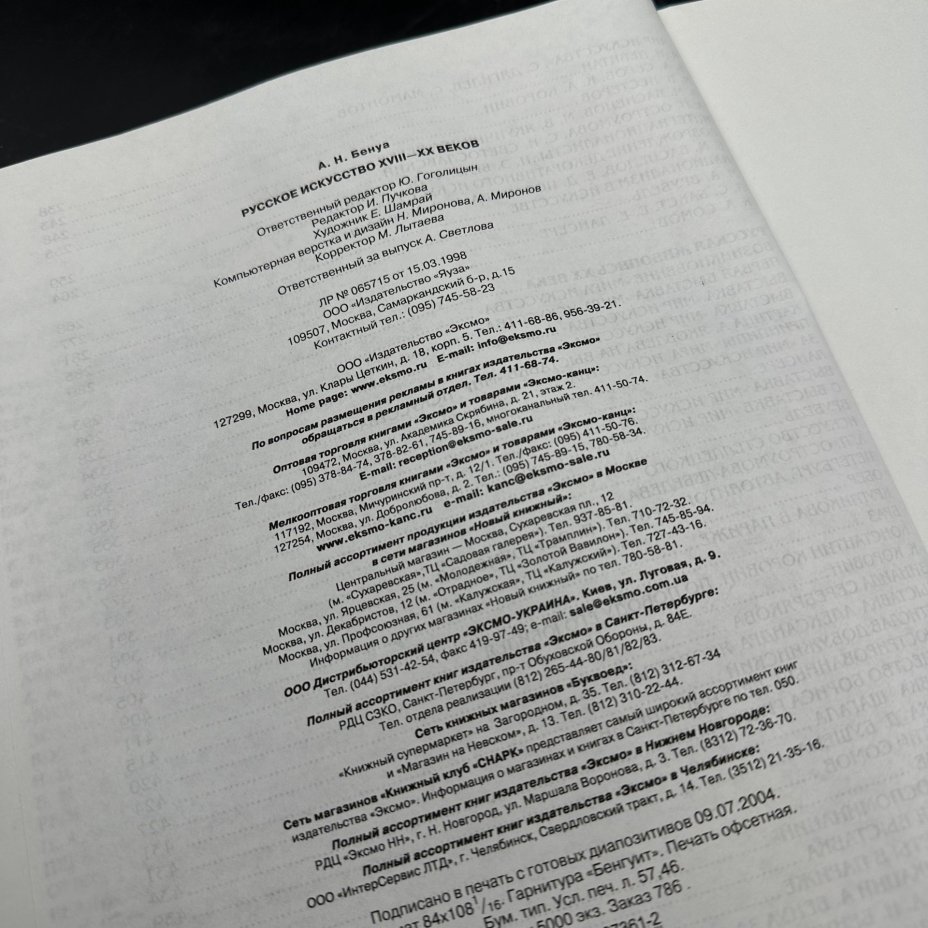 А. Н. Бенуа
РУССКОЕ ИСКУССТВО XVIII—XX ВЕКОВ
Ответственный редактор Ю. Гоголицын
Редактор И. Пучкова
Художник Е. Шамрай
Компьютерная верстка и дизайн Н. Миронова, А. Миронов
Корректор М. Лытаева
Ответственный за выпуск А. Светлова
ЛР № 065715 от 15.03.1998
ООО «Издательство «Яуза»
109507, Москва, Самаркандский б-р, д.15
Контактный тел.: (095) 745-58-23
ООО «Издательство «Эксмо»
127299, Москва, ул. Клары Цеткин, д. 18, корп. 5. Тел.: 411-68-86, 956-39-21.
Home page: www.eksmo.ru E-mail: info@eksmo.ru
По вопросам размещения рекламы в книгах издательства «Эксмо»
обращаться в рекламный отдел. Тел. 411-68-74.
Оптовая торговля книгами «Эксмо» и товарами «Эксмо-канц»:
109472, Москва, ул. Академика Скрябина, д. 21, этаж 2.
Тел./факс: (095) 378-84-74, 378-82-61, 745-89-16, многоканальный тел. 411-50-74.
E-mail: reception@eksmo-sale.ru
Мелкооптовая торговля книгами «Эксмо» и товарами «Эксмо-канц»:
117192, Москва, Мичуринский пр-т, д. 12/1. Тел./факс: (095) 411-50-76.
127254, Москва, ул. Добролюбова, д. 2. Тел.: (095) 745-89-15, 780-58-34.
www.eksmo-kanc.ru e-mail: kanc@eksmo-sale.ru
Полный ассортимент продукции издательства «Эксмо» в Москве
в сети магазинов «Новый книжный»:
Центральный магазин — Москва, Сухаревская пл., 12
(м. «Сухаревская», ТЦ «Садовая галерея»). Тел. 937-85-81.
Москва, ул. Ярцевская, 25 (м. «Молодежная», ТЦ «Трамплин»). Тел. 710-72-32.
Москва, ул. Декабристов, 12 (м. «Отрадное», ТЦ «Золотой Вавилон»). Тел. 745-85-94.
Москва, ул. Профсоюзная, 61 (м. «Калужская», ТЦ «Калужский»). Тел. 727-43-16.
Информация о других магазинах «Новый книжный» по тел. 780-58-81.
ООО Дистрибьюторский центр «ЭКСМО-УКРАИНА». Киев, ул. Луговая, д. 9.
Тел. (044) 531-42-54, факс 419-97-49; e-mail: sale@eksmo.com.ua
Полный ассортимент книг издательства «Эксмо» в Санкт-Петербурге:
РДЦ СЗКО, Санкт-Петербург, пр-т Обуховской Обороны, д. 84Е.
Тел. отдела реализации (812) 265-44-80/81/82/83.
Сеть книжных магазинов «Буквоед»:
«Книжный супермаркет» на Загородном, д. 35. Тел. (812) 312-67-34
и «Магазин на Невском», д. 13. Тел. (812) 310-22-44.
Сеть магазинов «Книжный клуб «СНАРК» представляет самый широкий ассортимент книг
издательства «Эксмо». Информация о магазинах и книгах в Санкт-Петербурге по тел. 050.
Полный ассортимент книг издательства «Эксмо» в Нижнем Новгороде:
РДЦ «Эксмо НН», г. Н. Новгород, ул. Маршала Воронова, д. 3. Тел. (8312) 72-36-70.
Полный ассортимент книг издательства «Эксмо» в Челябинске:
ООО «ИнтерСервис ЛТД», г. Челябинск, Свердловский тракт, д. 14. Тел. (3512) 21-35-16.
Подписано в печать с готовых диапозитивов 09.07.2004.
84x108 1/16. Гарнитура «Бенгуит». Печать офсетная.
Бум. тип. Усл. печ. л. 57,46.
5000 экз. Заказ 786 .